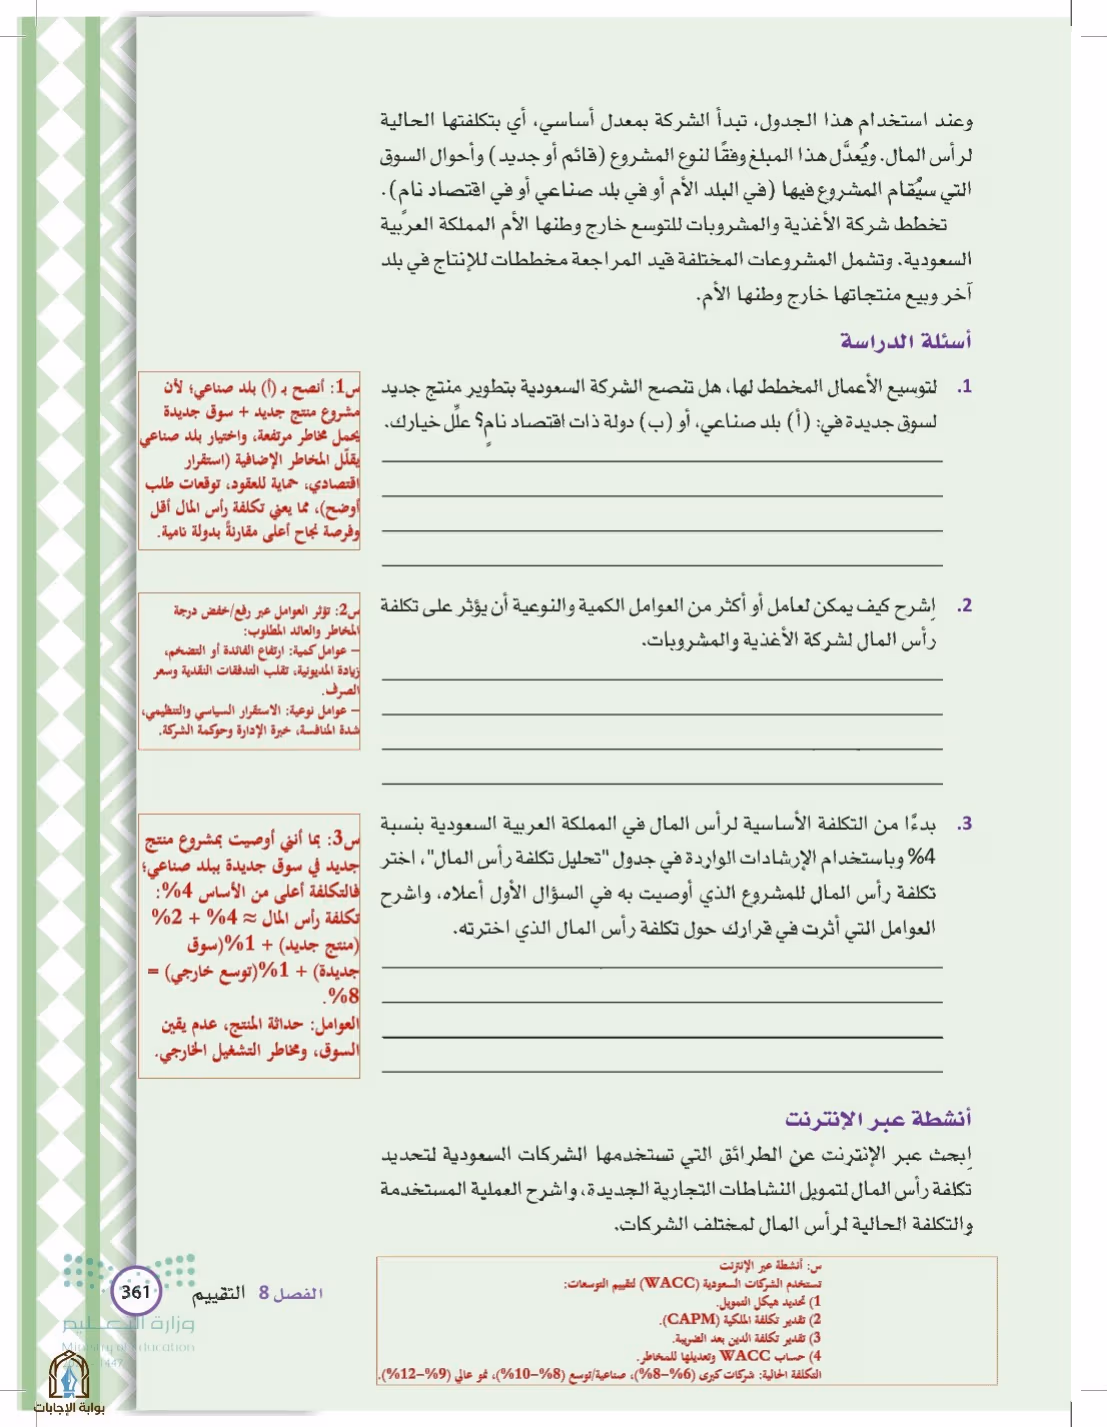 وعند استخدام هذا الجدول، تبدأ الشركة بمعدل أساسي، أي بتكلفتها الحالية
لرأس المال. ويُعدَّل هذا المبلغ وفقًا لنوع المشروع (قائم أو جديد) وأحوال السوق
التي سيُقام المشروع فيها (في البلد الأم أو في بلد صناعي أو في اقتصاد نامٍ).
تخطط شركة الأغذية والمشروبات للتوسع خارج وطنها الأم المملكة العربية
السعودية. وتشمل المشروعات المختلفة قيد المراجعة مخططات للإنتاج في بلد
آخر وبيع منتجاتها خارج وطنها الأم.
أسئلة الدراسة
1. لتوسيع الأعمال المخطط لها، هل تنصح الشركة السعودية بتطوير منتج جديد
لسوق جديدة في: (أ) بلد صناعي، أو (ب) دولة ذات اقتصاد نامٍ؟ علِّل خيارك.
س1: أنصح بـ (أ) بلد صناعي؛ لأن
مشروع منتج جديد + سوق جديدة
يحمل مخاطر مرتفعة، واختيار بلد صناعي
يقلّل المخاطر الإضافية (استقرار
اقتصادي، حماية للعقود، توقعات طلب
أوضح)، مما يعني تكلفة رأس المال أقل
وفرصة نجاح أعلى مقارنةً بدولة نامية.
2. اِشرح كيف يمكن لعامل أو أكثر من العوامل الكمية والنوعية أن يؤثر على تكلفة
رأس المال لشركة الأغذية والمشروبات.
س2: تؤثر العوامل عبر رفع/خفض درجة
المخاطر والعائد المطلوب:
– عوامل كمية: ارتفاع الفائدة أو التضخم،
زيادة المديونية، تقلب التدفقات النقدية وسعر
الصرف.
– عوامل نوعية: الاستقرار السياسي والتنظيمي،
شدة المنافسة، خبرة الإدارة وحوكمة الشركة.
3. بدءًا من التكلفة الأساسية لرأس المال في المملكة العربية السعودية بنسبة
4% وباستخدام الإرشادات الواردة في جدول "تحليل تكلفة رأس المال"، اختر
تكلفة رأس المال للمشروع الذي أوصيت به في السؤال الأول أعلاه، واشرح
العوامل التي أثرت في قرارك حول تكلفة رأس المال الذي اخترته.
س3: بما أنني أوصيت بمشروع منتج
جديد في سوق جديدة ببلد صناعي؛
فالتكلفة أعلى من الأساس 4%:
تكلفة رأس المال ≈ 4% + 2%
(منتج جديد) + 1%(سوق
جديدة) + 1%(توسع خارجي) =
8%.
العوامل: حداثة المنتج، عدم يقين
السوق، ومخاطر التشغيل الخارجي.
أنشطة عبر الإنترنت
اِبحث عبر الإنترنت عن الطرائق التي تستخدمها الشركات السعودية لتحديد
تكلفة رأس المال لتمويل النشاطات التجارية الجديدة، واشرح العملية المستخدمة
والتكلفة الحالية لرأس المال لمختلف الشركات.
س: أنشطة عبر الإنترنت
تستخدم الشركات السعودية (WACC) لتقييم التوسعات:
1) تحديد هيكل التمويل.
2) تقدير تكلفة الملكية (CAPM).
3) تقدير تكلفة الدين بعد الضريبة.
4) حساب WACC وتعديلها للمخاطر.
التكلفة الحالية: شركات كبرى (6%–8%)، صناعية/توسع (8%–10%)، نمو عالي (9%–12%).
الفصل 8 التقييم 361
وزارة التعليم
Ministry of Education
1447
بوابة الإجابات